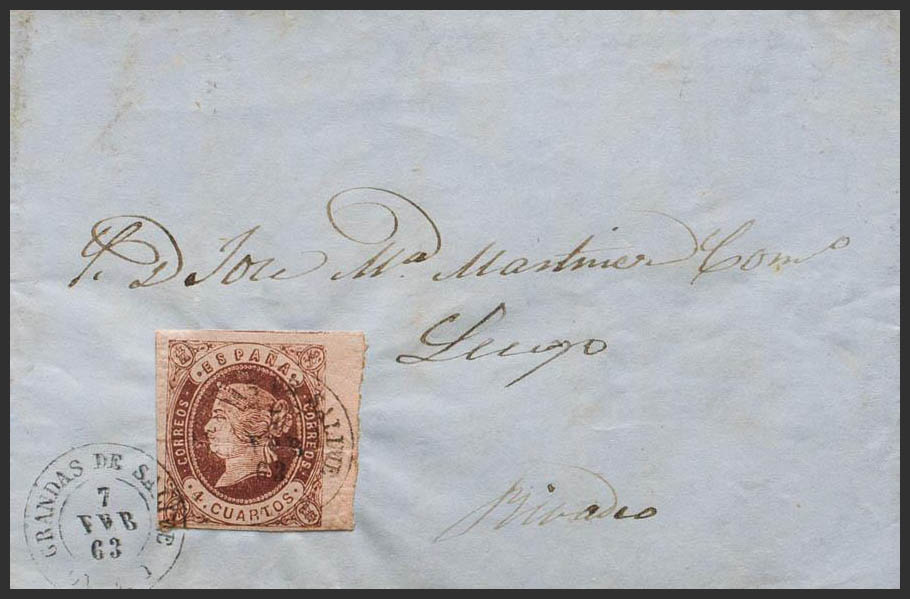 S. D Jose Mª Martinez Comº
Lugo
Rivadeo
ESPAÑA
CORREOS
CORREOS
4. CUARTOS
GRANDAS DE SALIME
7
FEB
63